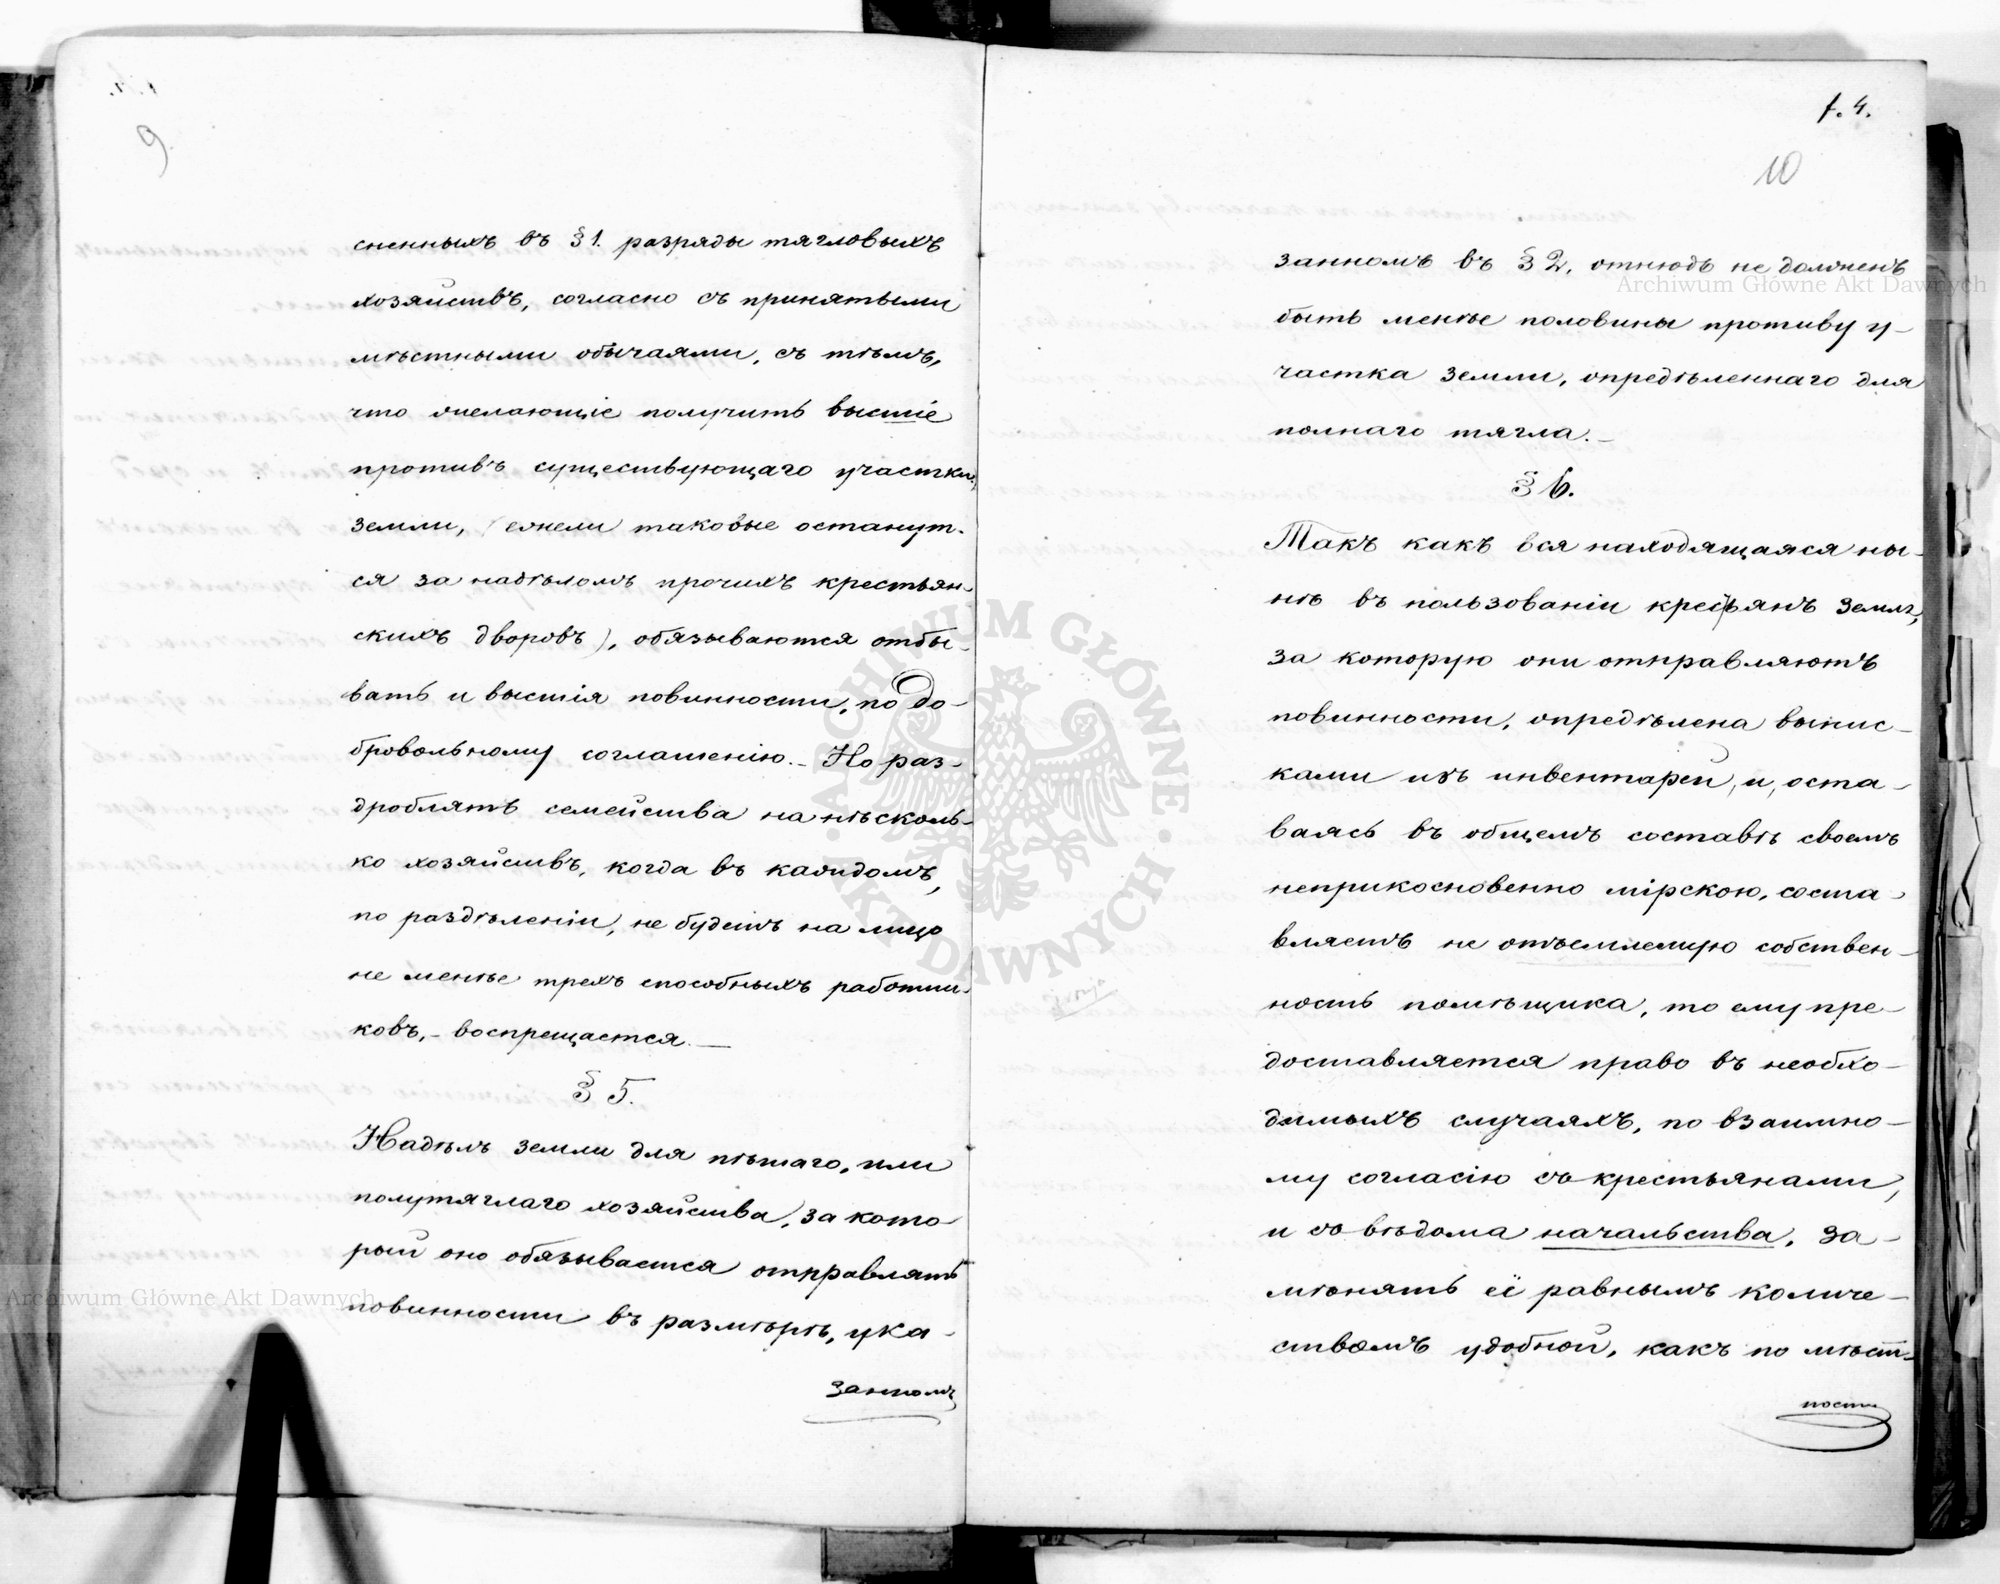 9
сненныхъ въ §1. разряды тягловыхъ
хозяйствъ, согласно съ принятыми
мѣстными обычаями, съ тѣмъ,
что желающіе получить высшіе
противъ существующаго участки
земли, (ежели таковые останут-
ся за надѣломъ прочихъ крестьян-
скихъ дворовъ), обязываются отбы-
вать и высшія повинности, по до-
бровольному соглашенію. – Но раз-
дроблять семейства на нѣсколь-
ко хозяйствъ, когда въ каждомъ,
по раздѣленіи, не будетъ на лицо
не менѣе трехъ способныхъ работни-
ковъ, – воспрещается. —
§ 5.
Надѣлъ земли для пѣшаго, или
полутяглаго хозяйства, за кото-
рый оно обязывается отправлять
повинности въ размѣрѣ, ука-
занномъ
f. 4.
10
занномъ въ § 2, отнюдь не долженъ
быть менѣе половины противу у-
частка земли, опредѣленнаго для
полнаго тягла. –
§ 6.
Такъ какъ вся находящаяся ны-
нѣ въ пользованіи крестьянъ земля,
за которую они отправляютъ
повинности, опредѣлена выпис-
ками изъ инвентарей, и, оста-
ваясь въ общемъ составѣ своемъ
неприкосновенно мірскою, соста-
вляетъ не отъемлемую собствен-
ность помѣщика, то ему пре-
доставляется право въ необхо-
димыхъ случаяхъ, по взаимно-
му согласію съ крестьянами,
и съ вѣдома начальства, за-
мѣнять её равнымъ количе-
ствомъ удобной, какъ по мѣст-
ности
Archiwum Główne Akt Dawnych
Archiwum Główne Akt Dawnych
ARCHIWUM GŁÓWNE · AKT DAWNYCH ·